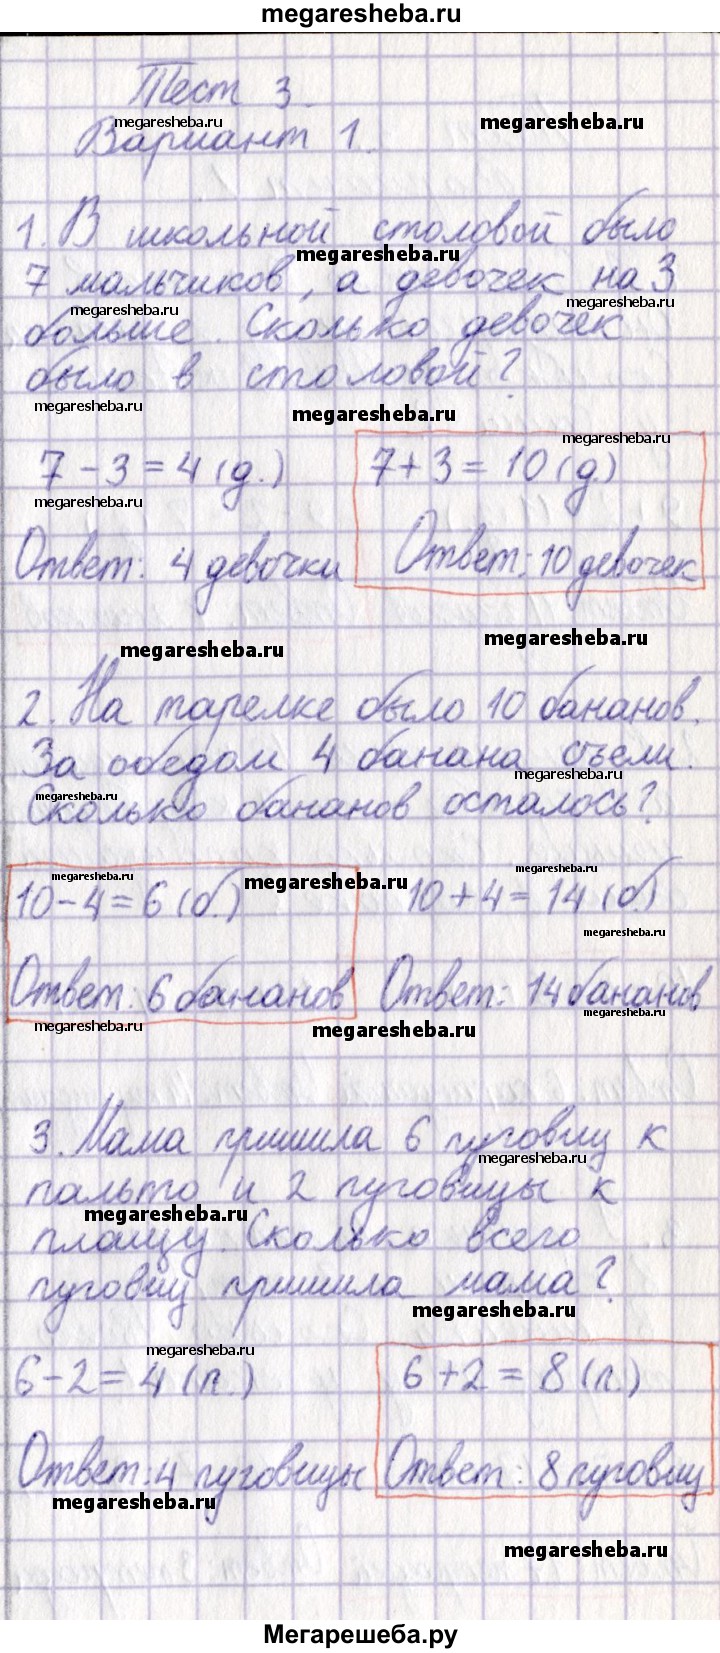 megaresheba.ru
Тест 3.
megaresheba.ru
megaresheba.ru
Вариант 1.
1. В школьной столовой было
megaresheba.ru
7 мальчиков, а девочек на 3
megaresheba.ru
megaresheba.ru
больше. Сколько девочек
было в столовой?
megaresheba.ru
megaresheba.ru
megaresheba.ru
7 - 3 = 4 (д.) 7 + 3 = 10 (д.)
Ответ: 4 девочки Ответ: 10 девочек
megaresheba.ru
megaresheba.ru
2. На тарелке было 10 бананов.
За обедом 4 банана съели.
megaresheba.ru
megaresheba.ru
Сколько бананов осталось?
megaresheba.ru
megaresheba.ru
megaresheba.ru
10 - 4 = 6 (б.) 10 + 4 = 14 (б)
megaresheba.ru
Ответ: 6 бананов Ответ: 14 бананов
megaresheba.ru
megaresheba.ru
megaresheba.ru
3. Мама пришила 6 пуговиц к
megaresheba.ru
пальто и 2 пуговицы к
megaresheba.ru
плащу. Сколько всего
пуговиц пришила мама?
megaresheba.ru
megaresheba.ru
6 - 2 = 4 (п.) 6 + 2 = 8 (п.)
Ответ: 4 пуговицы Ответ: 8 пуговиц
megaresheba.ru
megaresheba.ru
Мегарешеба.ру